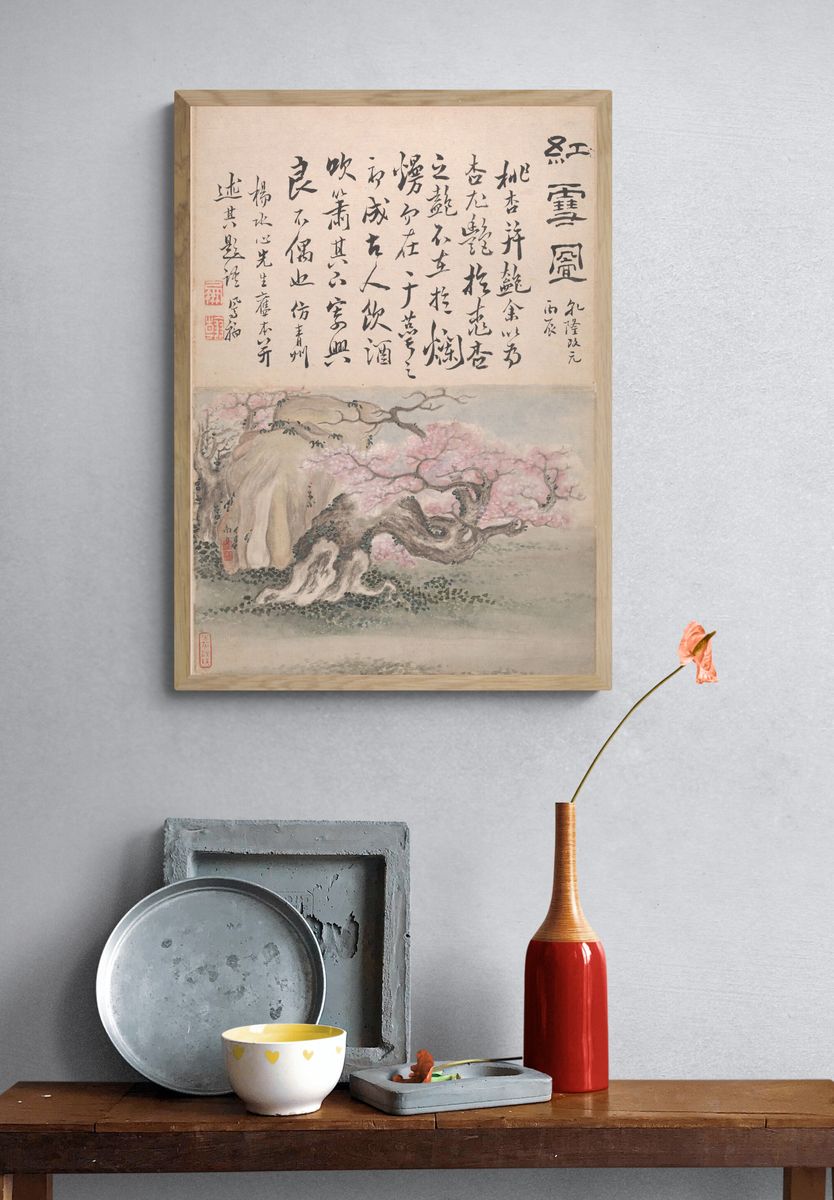 紅雪圖
乾隆改元
丙辰
桃杏并艷余以為
杏尤艷於桃杏
之艷不在於爛
熳而在于萼之
初成古人飲酒
吹簫其下寄興
良不偶也仿青州
楊水心先生舊本并
述其題語